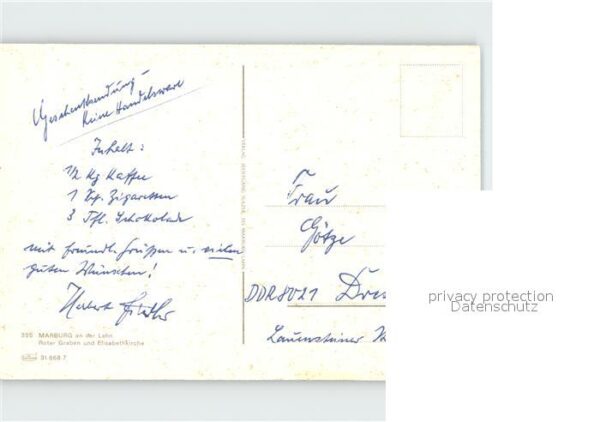 Geschenksendung –
keine Handelsware
Inhalt:
1/2 kg Kaffee
1 Zigaretten
3 Tfl. Schokolade
mit freundl. Grüßen u. vielen
guten Wünschen!
Herbert
395 MARBURG an der Lahn
Roter Graben und Elisabethkirche
31 668 7
Frau
Götze
DDR 8021 Dres
Lauensteiner
privacy protection
Datenschutz